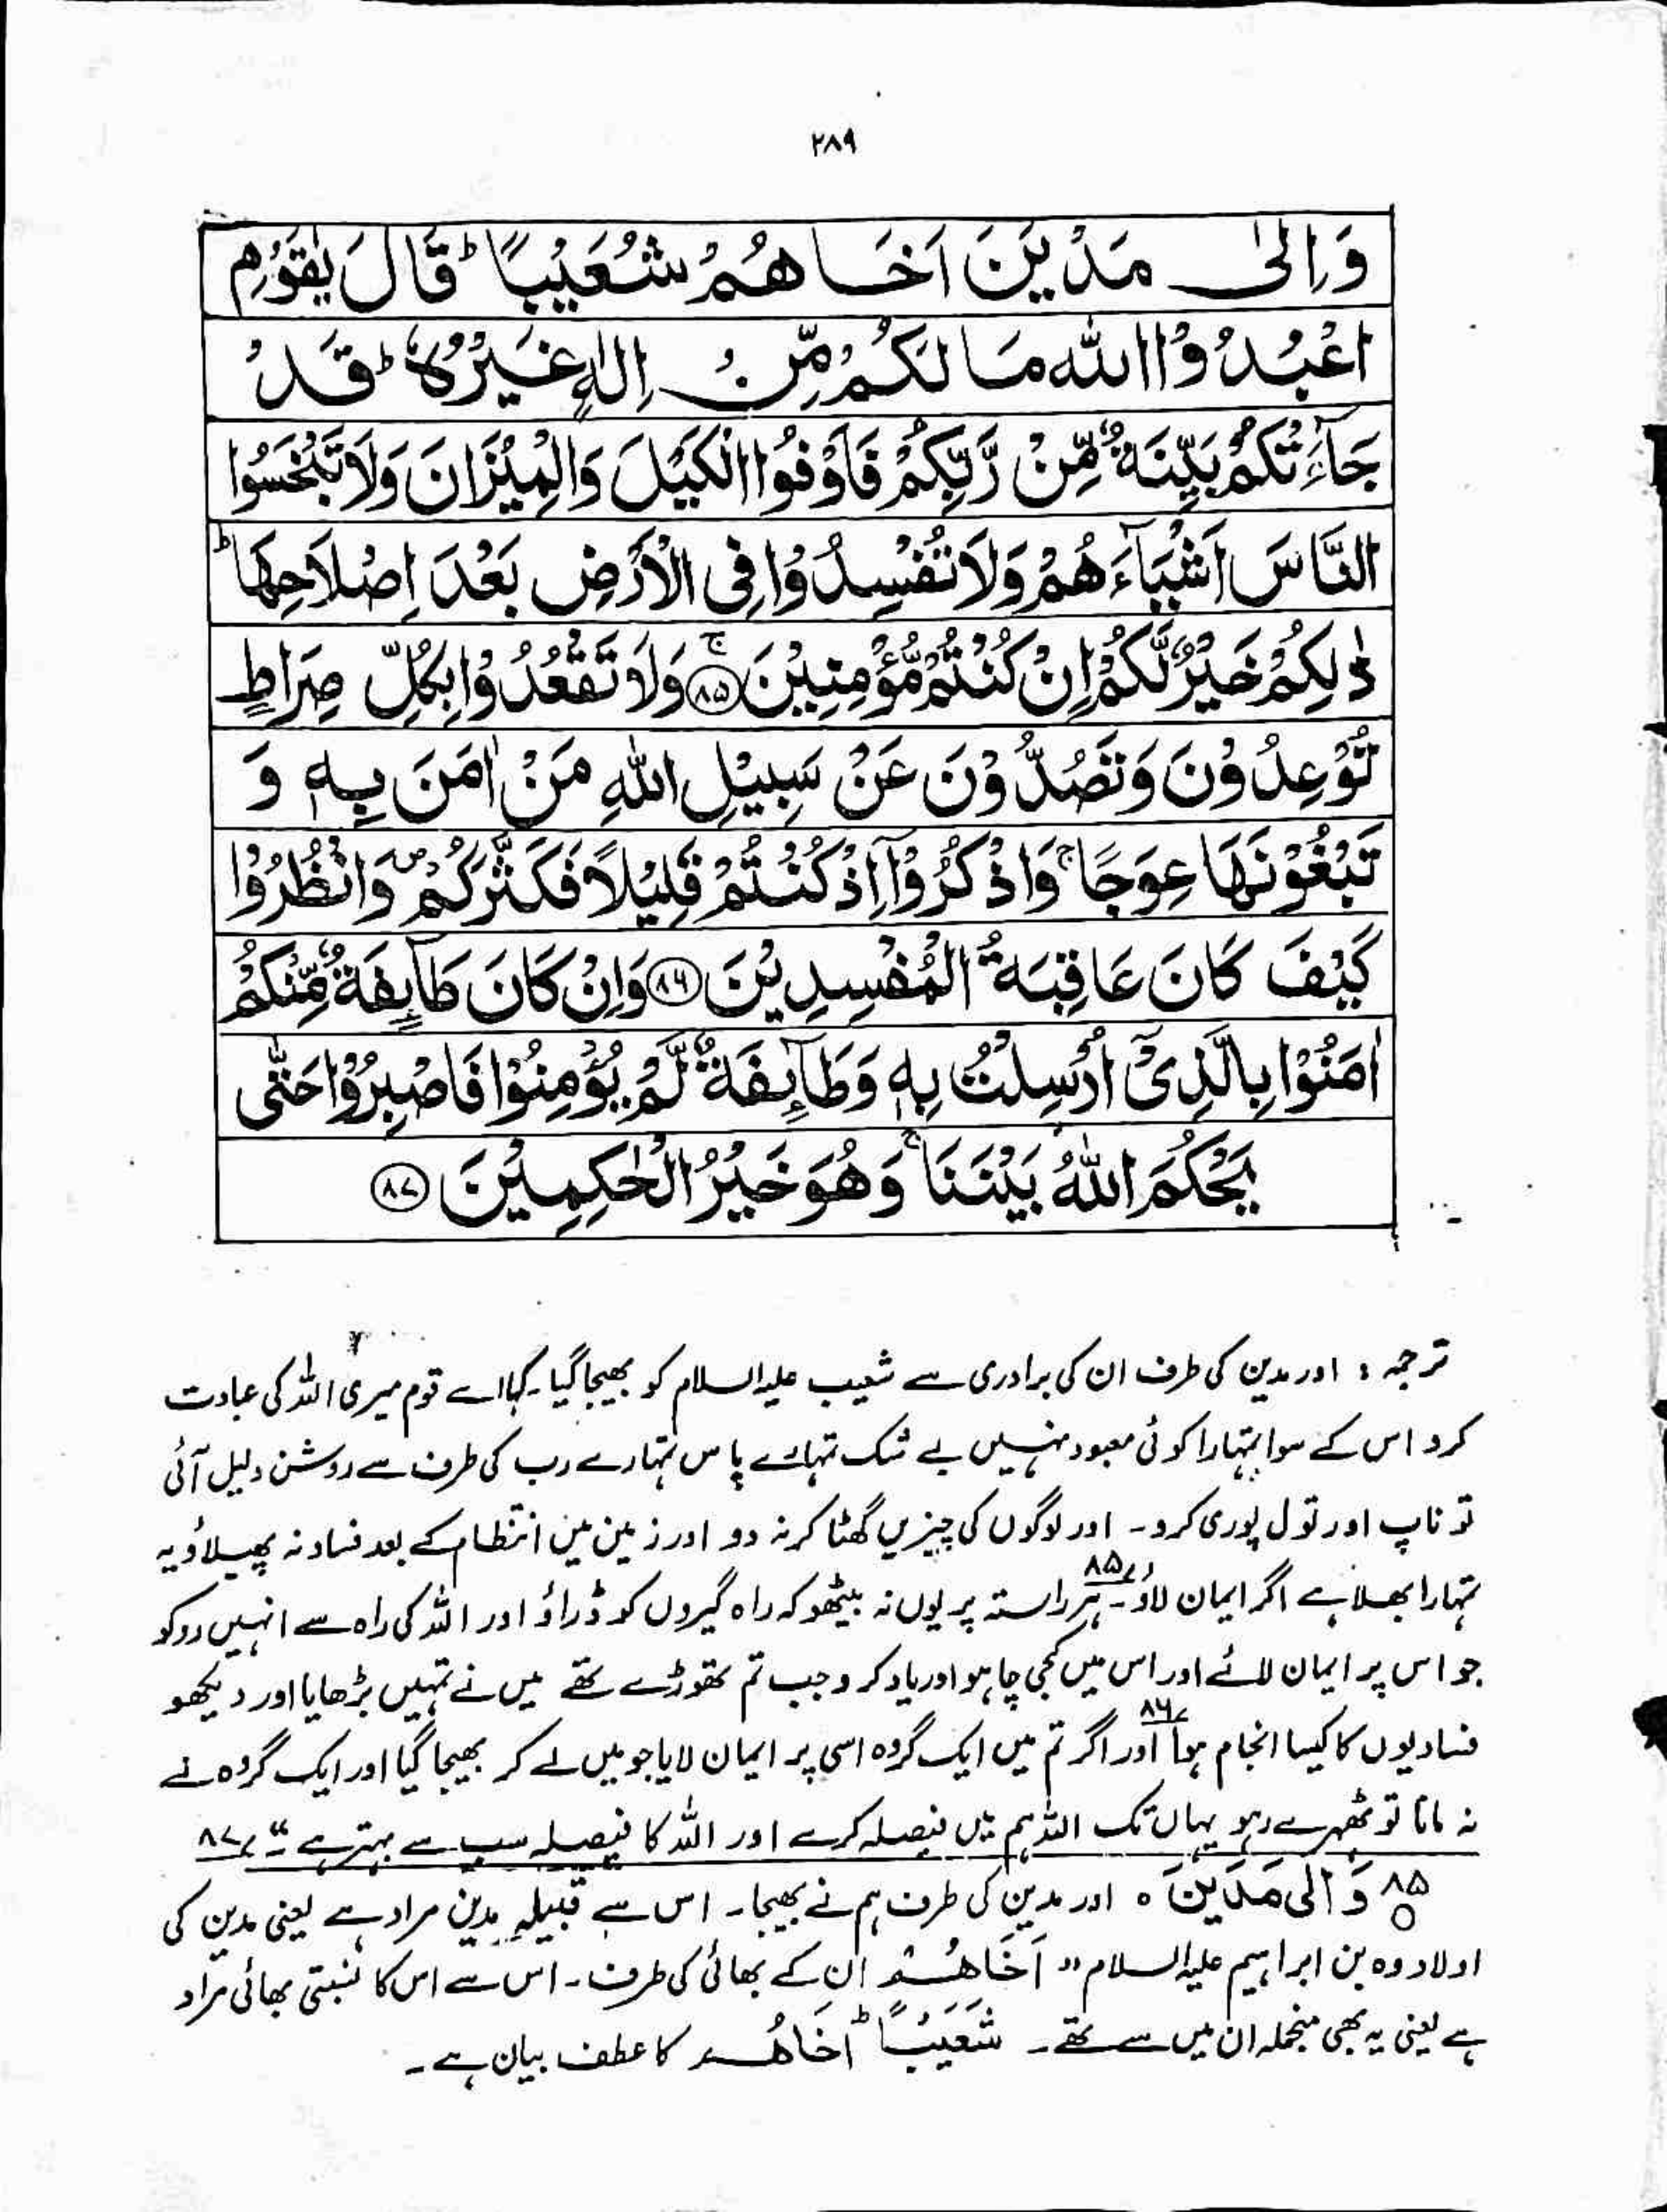 ۲۸۹
وَاِلٰى مَدْيَنَ اَخَاهُمْ شُعَيْبًا ؕ قَالَ يٰقَوْمِ
اعْبُدُوا اللّٰهَ مَا لَكُمْ مِّنْ اِلٰهٍ غَيْرُهٗ ؕ قَدْ
جَآءَتْكُمْ بَيِّنَةٌ مِّنْ رَّبِّكُمْ فَاَوْفُوا الْكَيْلَ وَالْمِيْزَانَ وَلَا تَبْخَسُوا
النَّاسَ اَشْيَآءَهُمْ وَلَا تُفْسِدُوْا فِى الْاَرْضِ بَعْدَ اِصْلَاحِهَا ؕ
ذٰلِكُمْ خَيْرٌ لَّكُمْ اِنْ كُنْتُمْ مُّؤْمِنِيْنَ ۚ ﴿۸۵﴾ وَلَا تَقْعُدُوْا بِكُلِّ صِرَاطٍ
تُوْعِدُوْنَ وَتَصُدُّوْنَ عَنْ سَبِيْلِ اللّٰهِ مَنْ اٰمَنَ بِهٖ وَ
تَبْغُوْنَهَا عِوَجًا ۚ وَاذْكُرُوْٓا اِذْ كُنْتُمْ قَلِيْلًا فَكَثَّرَكُمْ ۪ وَانْظُرُوْا
كَيْفَ كَانَ عَاقِبَةُ الْمُفْسِدِيْنَ ﴿۸۶﴾ وَاِنْ كَانَ طَآىِٕفَةٌ مِّنْكُمْ
اٰمَنُوْا بِالَّذِىْٓ اُرْسِلْتُ بِهٖ وَطَآىِٕفَةٌ لَّمْ يُؤْمِنُوْا فَاصْبِرُوْا حَتّٰى
يَحْكُمَ اللّٰهُ بَيْنَنَا ۚ وَهُوَ خَيْرُ الْحٰكِمِيْنَ ﴿۸۷﴾
ترجمہ : اور مدین کی طرف ان کی برادری سے شعیب علیہ السلام کو بھیجا گیا۔ کہا اے قوم میری اللہ کی عبادت
کرو اس کے سوا تمہارا کوئی معبود نہیں بے شک تمہارے پاس تمہارے رب کی طرف سے روشن دلیل آئی
تو ناپ اور تول پوری کرو۔ اور لوگوں کی چیزیں گھٹا کر نہ دو اور زمین میں انتظام کے بعد فساد نہ پھیلاؤ یہ
تمہارا بھلا ہے اگر ایمان لاؤ۔ ۸۵؎ ہر راستہ پر یوں نہ بیٹھو کہ راہ گیروں کو ڈراؤ اور اللہ کی راہ سے انہیں روکو
جو اس پر ایمان لائے اور اس میں کجی چاہو اور یاد کرو جب تم تھوڑے تھے میں نے تمہیں بڑھایا اور دیکھو
فسادیوں کا کیسا انجام ہوا ۸۶؎ اور اگر تم میں ایک گروہ اسی پر ایمان لایا جو میں لے کر بھیجا گیا اور ایک گروہ نے
نہ مانا تو ٹھہرے رہو یہاں تک اللہ ہم میں فیصلہ کرے اور اللہ کا فیصلہ سب سے بہتر ہے ۸۷؎
۸۵ وَ اِلٰى مَدْيَنَ ہ اور مدین کی طرف ہم نے بھیجا۔ اس سے قبیلہ مدین مراد ہے یعنی مدین کی
اولاد وہ بن ابراہیم علیہ السلام" اَخَاهُمْ ان کے بھائی کی طرف۔ اس سے اس کا نسبتی بھائی مراد
ہے یعنی یہ بھی منجملہ ان میں سے تھے۔ شُعَيْبًا ؕ اَخَاهُمْ کا عطف بیان ہے۔